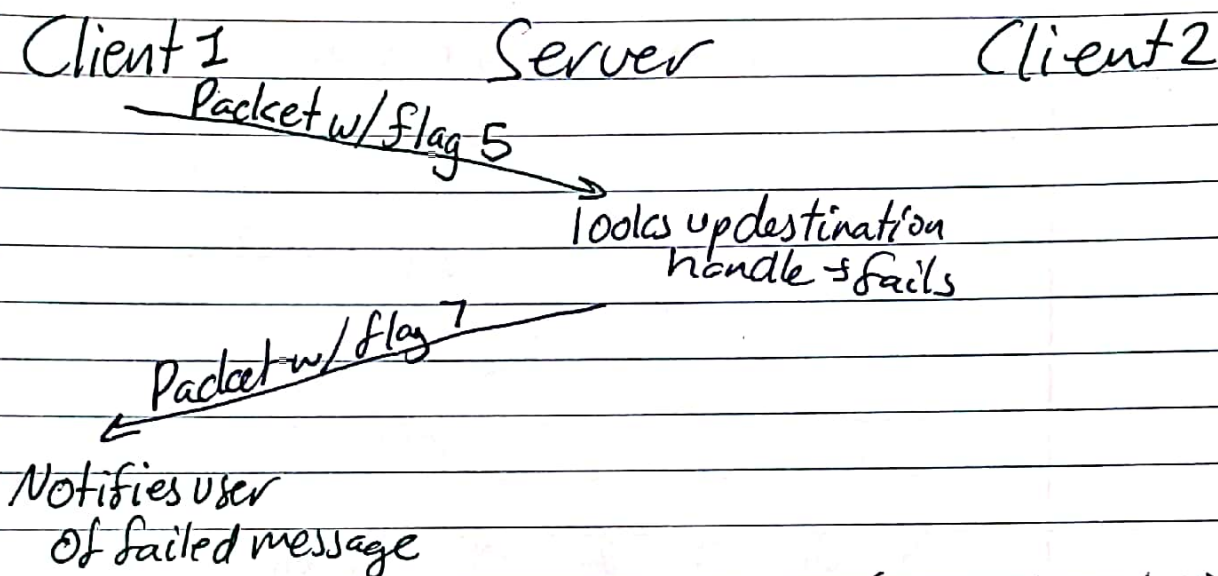 Client 1 Server Client 2
Packet w/ flag 5
looks up destination
handle & fails
Packet w/ flag 7
Notifies user
of failed message